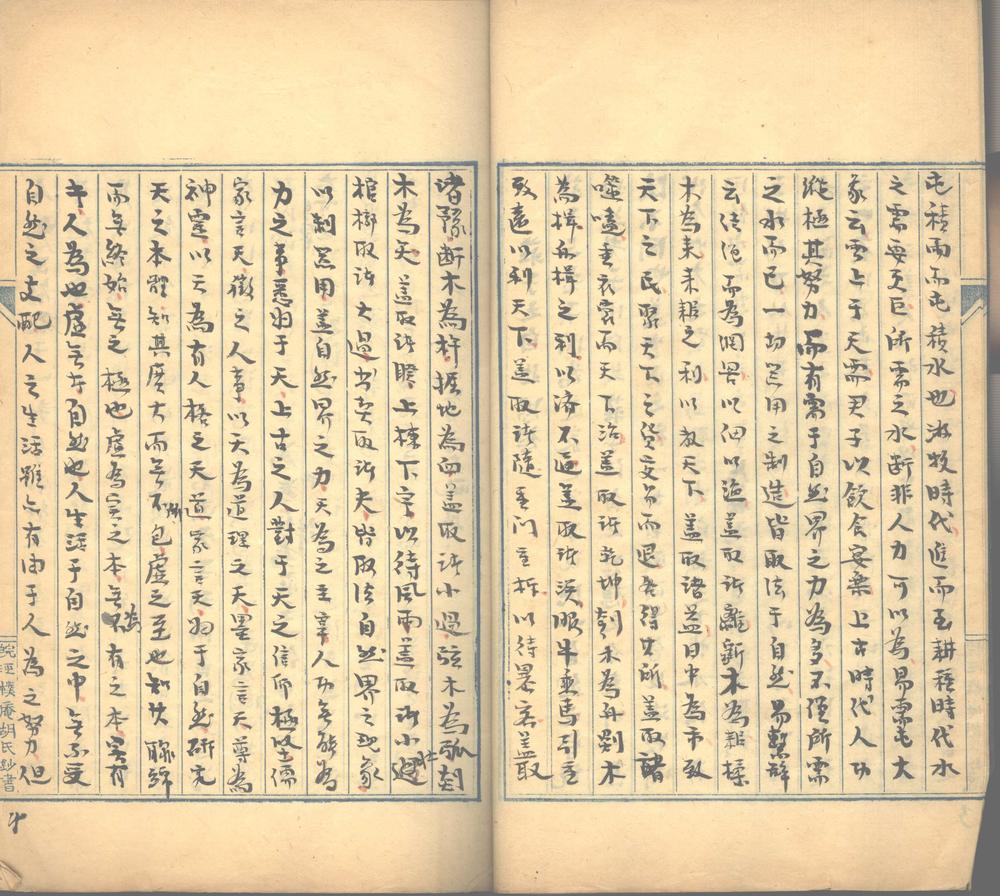 屯積雨而屯積水也游牧時代進而至耕種時代水
之需要至巨所需之水斷非人力可以為易需屯大
象云雲上于天需君子以飲食宴樂上古時代人功
縱極其努力而有需于自然界之力為多不僅所需
之水而已一切器用之制造皆取法于自然易繫辞
云结绳而為網罟以佃以漁蓋取诸離斲木為耜揉
木為耒耒耜之利以教天下蓋取諸益日中為市致
天下之民聚天下之貨交易而退各得其所蓋取諸
噬嗑垂衣裳而天下治蓋取诸乾坤刳木為舟剡木
為楫舟楫之利以济不通蓋取诸渙服牛乘馬引重
致遠以利天下蓋取诸隨重门擊柝以待暴客蓋取
諸豫断木為杵掘地為臼蓋取诸小過弦木為弧剡
木為矢蓋取诸睽上棟下宇以待風雨蓋取诸大壯
棺椁取诸大過书契取诸夬皆取法自然界之现象
以制器用蓋自然界之力天為之主宰人功無能為
力之事悉归于天上古之人對于天之信仰極坚儒
家言天徵之人事以天為道理之天墨家言天尊為
神靈以天為有人格之天道家言天归于自然研究
天之本體知其廣大而無所不包虛之至也知其聯綿
而無終始無之極也虛為實之本無為有之本實有
，人為也虛無本自然也人生活于自然之中無不受
自然之支配人之生活雖亦有由于人為之努力但
皖涇樸庵胡氏鈔書